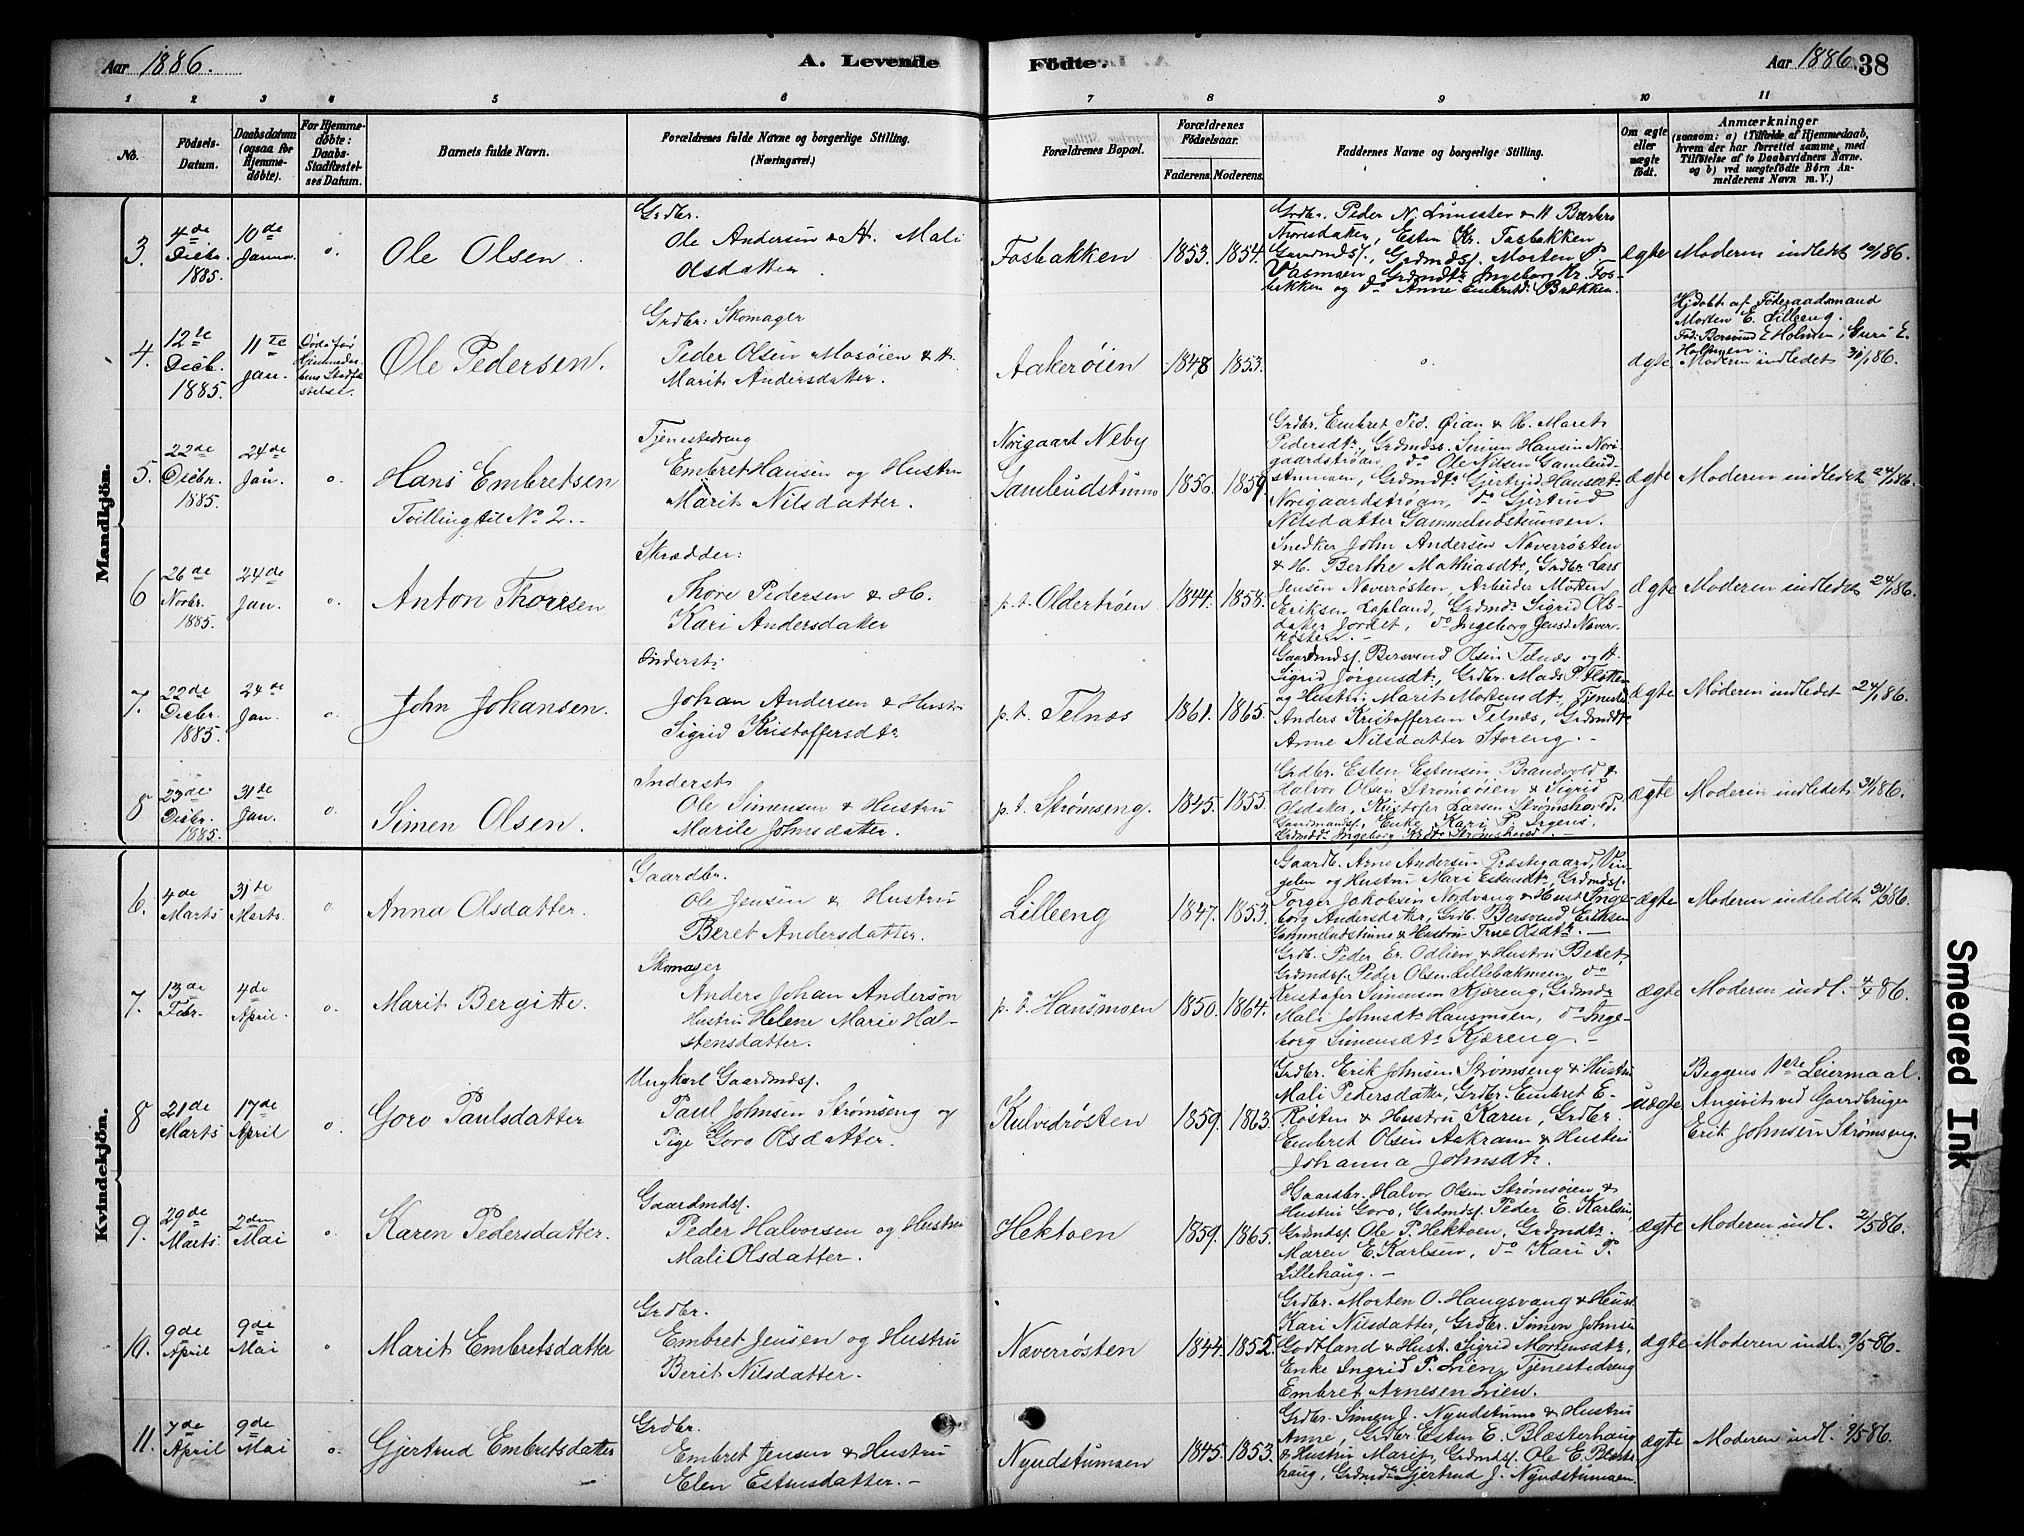 Aar 1886.
A. Levende
Födte.
Aar 1886.
38
1 2 3 4 5 6 7 8 9 10 11
No.
Födsels-Datum.
Daabsdatum (ogsaa for Hjemme-døbte).
For Hjemme-døbte: Daabs-Stadfæstel-ses Datum.
Barnets fulde Navn.
Forældrenes fulde Navne og borgerlige Stilling.
(Næringsvei.)
Forældrenes Bopæl.
Forældrenes Fødselsaar.
Faderens. Moderens.
Faddernes Navne og borgerlige Stilling.
Om ægte eller uægte født.
Anmærkninger
(saasom: a) i Tilfælde af Hjemmedaab, hvem der har forrettet samme, med Tilføielse af to Daabsvidners Navne. og b) ved uægtefødte Børn An-melderens Navn m. V.)
Mandkjön.
3. 4de Decbr. 1885 10de Januar. o. Ole Olsen.
Grdbr.
Ole Andersen & H. Mali
Olsdatter
Fosbakken 1853. 1854.
Grdbr. Peder N.
Esten Kr. Fosbakken
Grdmdsj. Morten
Ingeborg Kr. Fos-
bakken og do Anne Embretsd. Brækken.
ægte Moderen indledet 10/1 86.
4. 12te Decb. 1885. 11te Jan. Døde før Hjemmedaa-bens Stadfæ-stelse. Ole Pedersen.
Grdbr. Skomager
Peder Olsen Mosøien & H.
Marit Andersdatter.
Aakerøien 1848 1853. o.
ægte
Hjdøbt af Føderaadsmand
Morten E. Lilleeng.
Fad: Bersvend E Holmen, Guri E.
Holmen.
Moderen indledet 31/1 86.
5. 22de Decbr. 1885 24de Jan. o. Hans Embretsen
Tvilling til No 2.
Tjenestedreng
Embret Hansen og Hustru
Marit Nilsdatter.
Norigaard Neby
1856. 1859
Grdbr. Embret Ped. Øian & H. Marit
Pedersdtr., Grdmdss. Simen Hansen Nori-
gaardstrøen, do Ole Nilsen Gamlund-
stumoen, Grdmdtr Gjertrud Hansdtr
Norigaardstrøen, do Gjertrud
Nilsdatter Gammelundstumoen.
ægte Moderen indledet 24/1 86.
6 26de Novbr. 1885. 24de Jan. o. Anton Thoresen
Skrædder:
Thore Pedersen & H.
Kari Andersdatter
p. t. Oldertrøen 1844. 1858.
Snedker John Andersen Næverrøsten
& H. Berthe Mathiasdtr, Grdbr. Lars
Jensen Næverrøsten, Arbeider Morten
Eriksen Lopland, Grdmdtr Sigrid Ols-
datter Jordet, do Ingeborg Jensd. Næver-
røsten.
ægte Moderen indledet 24/1 86.
7. 22de Decbr. 1885. 24de Jan. o. John Johansen.
Inderst:
Johan Andersen & Hustr
Sigrid Kristoffersdtr
p. t. Telnæs 1861. 1865.
Gaardmdsj. Bersvend Olsen Telnæs og H
Sigrid Jørgensdtr, Grdbr. Mads P. Fløtte-
og Hustru Marit Mortensdtr, Tjenested.
Anders Kristoffersen Telnæs, Grdmdtr
Anne Nilsdatter Storeng. -
ægte Moderen indledet 24/1 86.
8 23de Decbr. 1885 31de Jan. o. Simen Olsen.
Inderst
Ole Simensen & Hustru
Marile Johnsdatter.
p. t. Strømseng. 1845. 1855.
Grdbr. Esten Estensen Brandvold &
Halvor Olsen Strømsøien & Sigrid
Olsdatter, Kristofer Larsen Strømshoved
Gaardmandsj. Enke Kari P.
Grdmdtr Ingeborg Strømshoved.
ægte Moderen indledet 31/1 86.
Kvindekjön.
6. 4de Marts 31de Marts. o Anna Olsdatter.
Gaardbr.
Ole Jensen & Hustru
Beret Andersdatter.
Lilleeng 1847. 1853.
Gaardb. Arne Andersen Præstegaard, Vin-
gelen og Hustru Mari Estensdtr, Grdmdsj.
Torger Jakobsen Nordvang & Hust Inge-
borg Andersdatter, Grdb. Bersvend Eriksen
Gammelundstumo & Hustru True Olsdtr. -
ægte Moderen indledet 31/3 86.
7. 13de Febr. 4de April. o. Marit Bergitte.
Skomager
Anders Johan Anderson
Hustru Helene Marie Hal-
stensdatter.
p. t. Hansmoen 1850. 1864.
Grdb. Peder Er. Odlien & Hustru Beret,
Grdmdsj. Peder Olsen Lillebakmoen, do
Kristofer Simensen Kjæreng, Grdmdtr
Mali Johnsdtr Hansmoen, do Inge-
borg Simensdtr Kjæreng. -
ægte Moderen indl. 4/4 86.
8 21de Marts 17de April o. Goro Paulsdatter
Ungkarl Gaardmdsj.
Paul Johnsen Strømseng og
Pige Goro Olsdatter.
Kulvedrøsten 1859. 1863.
Grdbr. Erik Johnsen Strømseng & Hustru
Mali Pedersdatter, Grdbr. Embret E.
Røsten & Hustru Karen, Grdbr.
Embret Olsen Aakrann & Hustru
Johanna Johnsdtr.
uægte
Begges 1ste Leiermaal.
Angivet ved Gaardbruger
Erik Johnsen Strømseng.
9. 29de Marts. 2den Mai o Karen Pedersdatter.
Gaardmdsj.
Peder Halvorsen og Hustru
Mali Olsdatter.
Hektoen 1859. 1865.
Gaardbr. Halvor Olsen Strømsøien &
Hustru Goro, Grdmdsj. Peder E. Karlsen,
Grdmdsj. Ole P. Hektoen, Grdmdtr.
Maren E. Karlsen, do Kari P.
Lillehaug. -
ægte Moderen indl. 2/5 86.
10. 9de April 9de Mai o Marit Embretsdatter
Grdbr.
Embret Jensen og Hustru
Berit Nilsdatter.
Næverrøsten 1844. 1852.
Grdbr. Morten O. Haugsvang & Hust.
Kari Nilsdatter, Grdbr. Simen Johnsen
Godtland & Hust. Sigrid Mortensdtr,
Enke Ingrid P. Lien, Tjenestedreng
Embret Arnesen Lien.
ægte Moderen indl. 9/5 86.
11. 7de April 9de Mai o. Gjertrud Embretsdatter
Grdbr.
Embret Jensen & Hustru
Elen Estensdatter. -
Nyudstumoen 1845. 1853.
Grdbr. Simen J. Nyudstumo & Hustru
Anne, Grdbr Esten E. Blæsterhaug
& Hustru Marit, Grdmdsj. Ole E. Blæster-
haug, Grdmdtr Gjertrud J. Nyudstumoen.
ægte Moderen indl. 9/5 86.
Smeared Ink